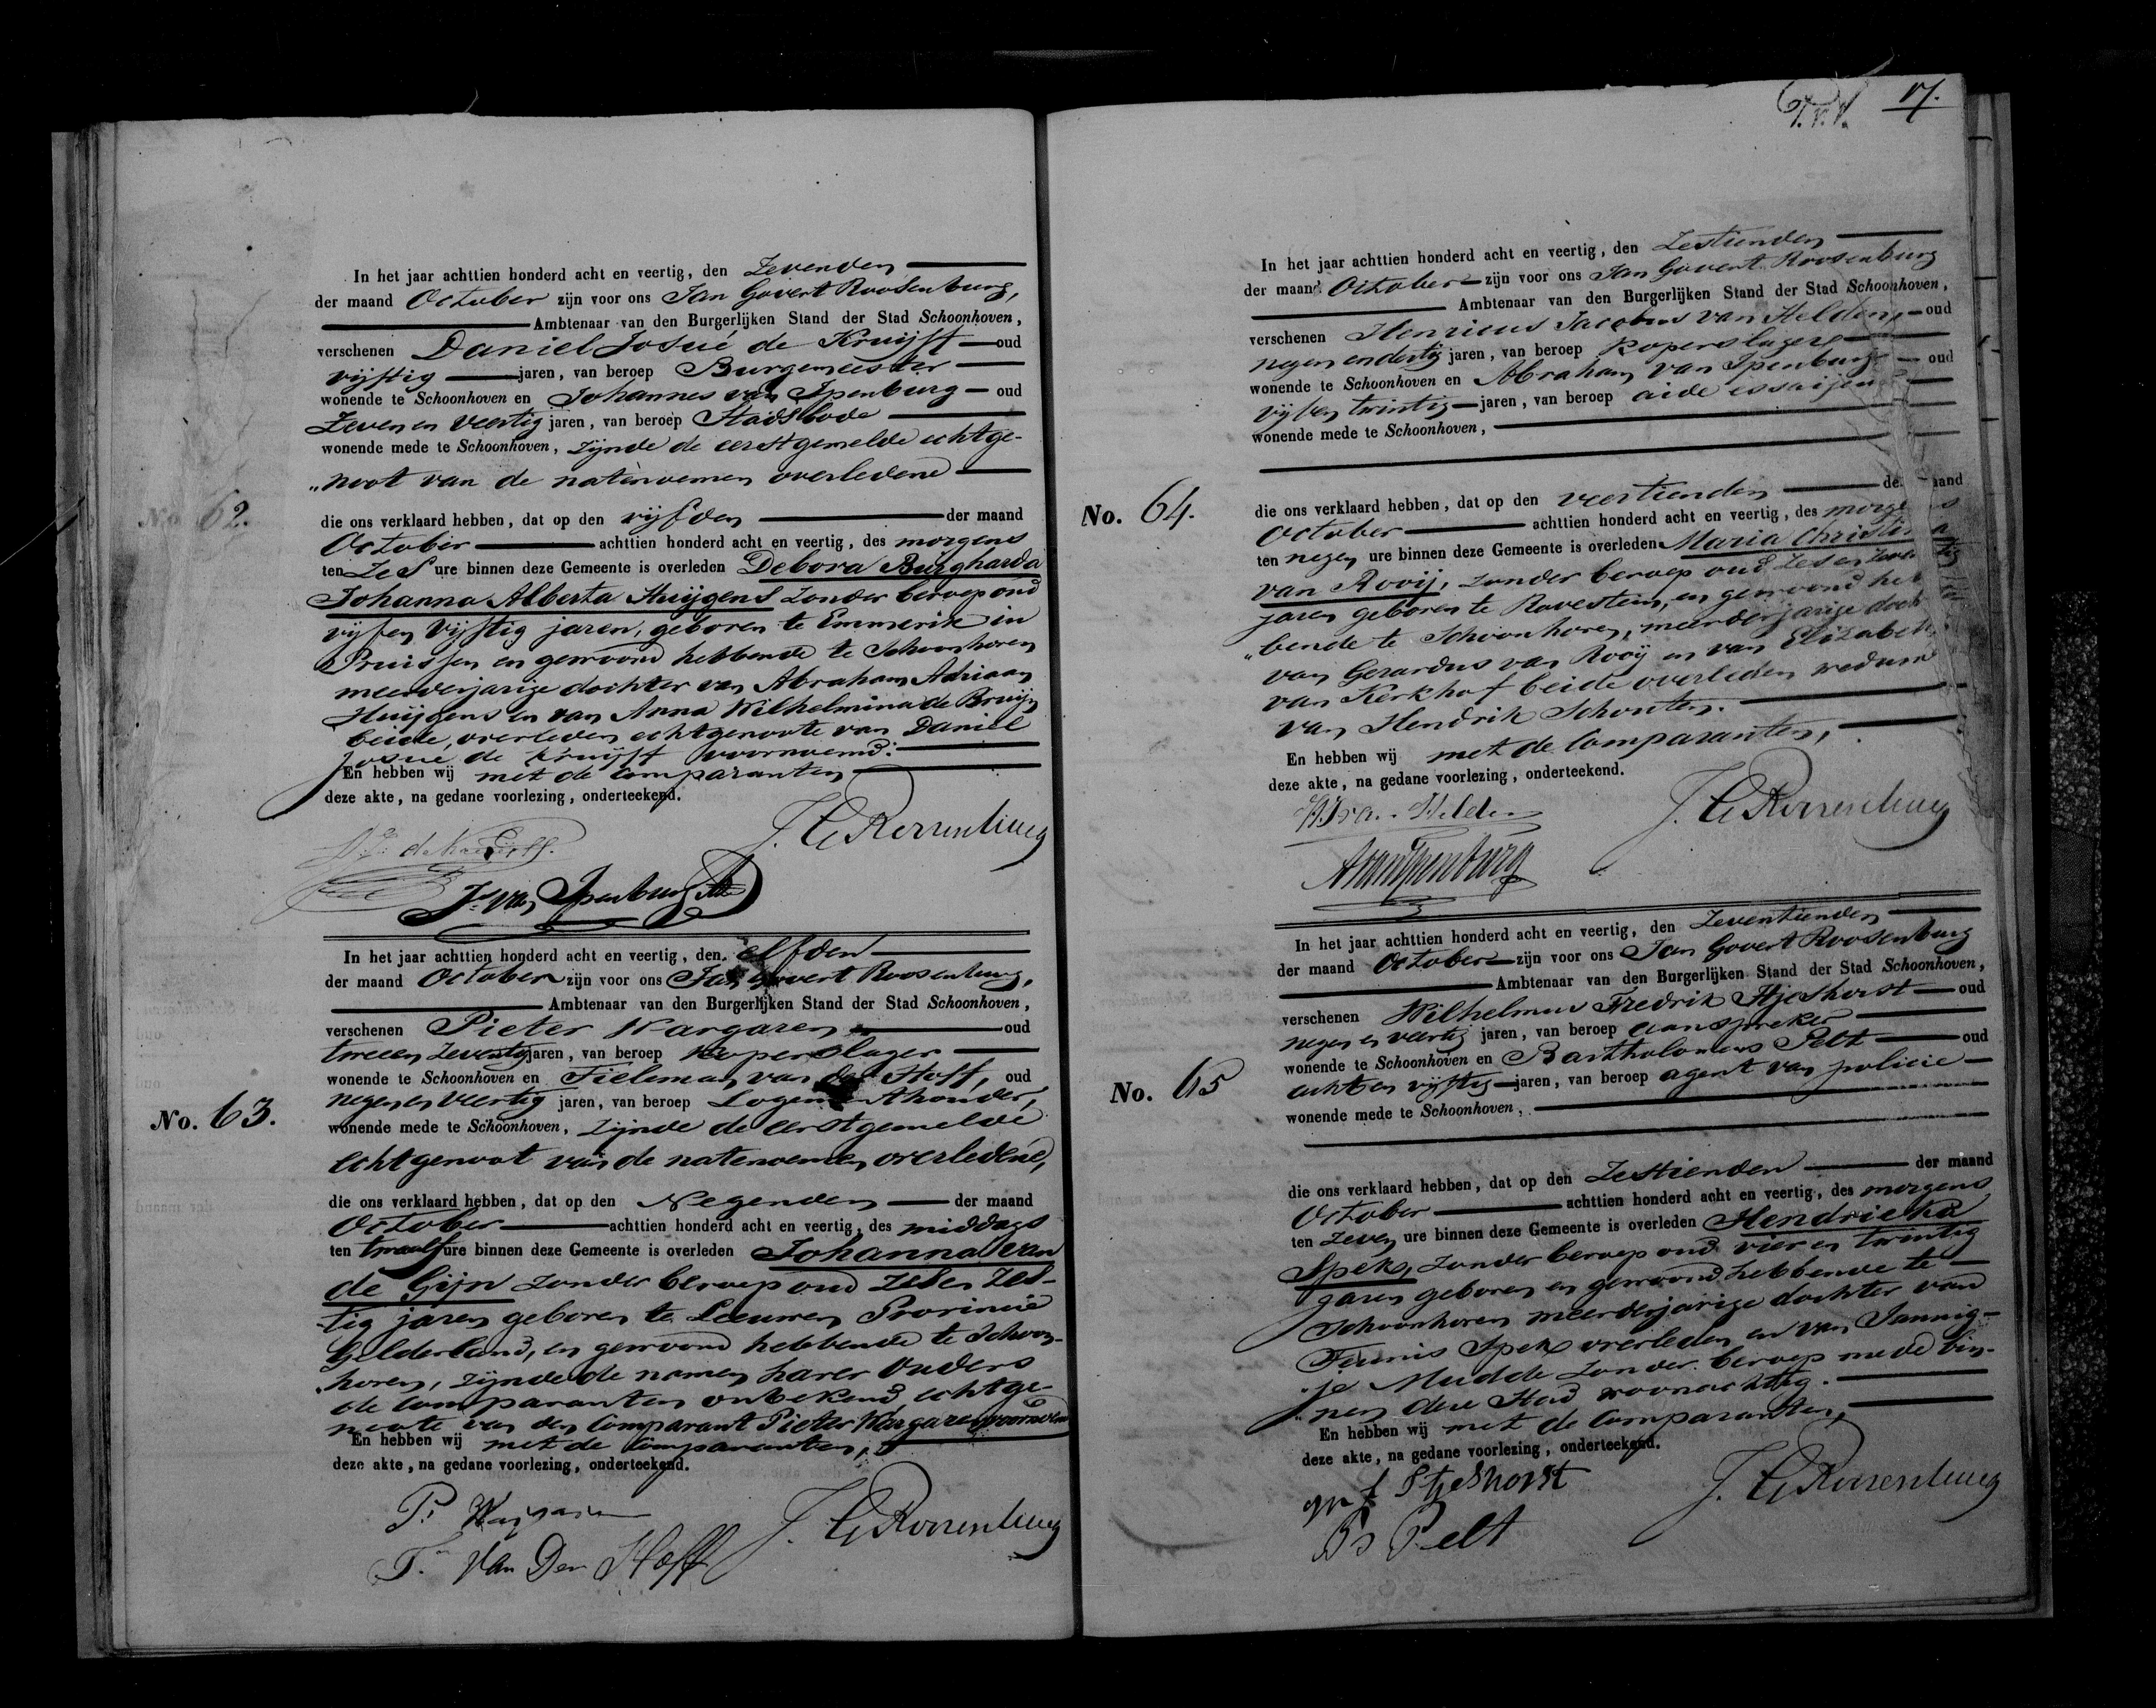 In het jaar achttien honderd acht en veertig, den Zevenden
der maand October zijn voor ons Jan Govert Roosenburg,
Ambtenaar van den Burgerlijken Stand der Stad Schoonhoven,
verschenen Daniel Josué de Kruijff oud
vijftig jaren, van beroep Burgemeester
wonende te Schoonhoven en Johannes van Ipenburg oud
Zeven en Veertig jaren, van beroep Stadsbode
wonende mede te Schoonhoven, zijnde de eerstgemelde echtge-
"noot van de natenoemen overledene
No. 62.
die ons verklaard hebben, dat op den vijfden der maand
October achttien honderd acht en veertig, des morgens
ten Zes ure binnen deze Gemeente is overleden Debora Burgharda
Johanna Alberta Huijgens zonder beroep oud
vijf en vijftig jaren, geboren te Emmerik in
Pruissen en gewoond hebbende te Schoonhoven
meerderjarige dochter van Abraham Adriaan
Huijgens en van Anna Wilhelmina de Bruijn
beide overleden echtgenoote van Daniel
Josué de Kruijff voornoemd.
En hebben wij met de Comparanten
deze akte, na gedane voorlezing, onderteekend.
J. G. Roosenburg
J. van Ipenburg
In het jaar achttien honderd acht en veertig, den elfden
der maand October zijn voor ons Jan Govert Roosenburg,
Ambtenaar van den Burgerlijken Stand der Stad Schoonhoven,
verschenen Pieter Wargaren oud
twee en Zeventig jaren, van beroep Koperslager
wonende te Schoonhoven en Tieleman van der Hoff, oud
negen en Veertig jaren, van beroep Logementhouder,
No. 63.
wonende mede te Schoonhoven, zijnde de eerstgemelde
echtgenoot van de natenoemen overledene,
die ons verklaard hebben, dat op den Negenden der maand
October achttien honderd acht en veertig, des middags
ten twaalf ure binnen deze Gemeente is overleden Johanna van
de Gijn zonder beroep oud Zes en Zes-
tig jaren geboren te Leeuwen Provincie
Gelderland, en gewoond hebbende te Schoon-
hoven, zijnde de namen harer Ouders
de Comparanten onbekend, echtge-
noote van den Comparant Pieter Wargaren voornoemd
En hebben wij met de Comparanten,
deze akte, na gedane voorlezing, onderteekend.
P. Wargaren
J. G. Roosenburg
T. Van Der Hoff
17.
In het jaar achttien honderd acht en veertig, den Zestienden
der maand October zijn voor ons Jan Govert Roosenburg
Ambtenaar van den Burgerlijken Stand der Stad Schoonhoven,
verschenen Henricus Jacobus van Helden, oud
negen en dertig jaren, van beroep Koperslager
wonende te Schoonhoven en Abraham van Ipenburg oud
vijf en twintig jaren, van beroep aide essaijeur
wonende mede te Schoonhoven,
No. 64.
die ons verklaard hebben, dat op den veertienden der maand
October achttien honderd acht en veertig, des morgens
ten negen ure binnen deze Gemeente is overleden Maria Christina
van Rooij, zonder beroep oud Zes en Zeventig
jaren geboren te Ravestein, en gewoond heb
"bende te Schoonhoven, meerderjarige dochter
van Gerardus van Rooij en van Elizabeth
van Kerkhof beide overleden weduwe
van Hendrik Schouten.
En hebben wij met de Comparanten,
deze akte, na gedane voorlezing, onderteekend.
H. J. van Helden
J. G. Roosenburg
A van Ipenburg
In het jaar achttien honderd acht en veertig, den Zeventienden
der maand October zijn voor ons Jan Govert Roosenburg
Ambtenaar van den Burgerlijken Stand der Stad Schoonhoven,
verschenen Wilhelmus Fredrik Stjeshorst oud
negen en veertig jaren, van beroep aanspreker
wonende te Schoonhoven en Bartholomeus Pelt oud
No. 65
acht en vijftig jaren, van beroep agent van policie
wonende mede te Schoonhoven,
die ons verklaard hebben, dat op den Zestienden der maand
October achttien honderd acht en veertig, des morgens
ten Zeven ure binnen deze Gemeente is overleden Hendricka
Spek, zonder beroep oud vier en twintig
jaren geboren en gewoond hebbende te
Schoonhoven meerderjarige dochter van
Teunis Spek overleden en van Jannig-
"je Mudde zonder beroep mede bin-
"nen deze Stad woonachtig.
En hebben wij met de Comparanten,
deze akte, na gedane voorlezing, onderteekend.
f Stjeshorst
J. G. Roosenburg
Bs Pelt